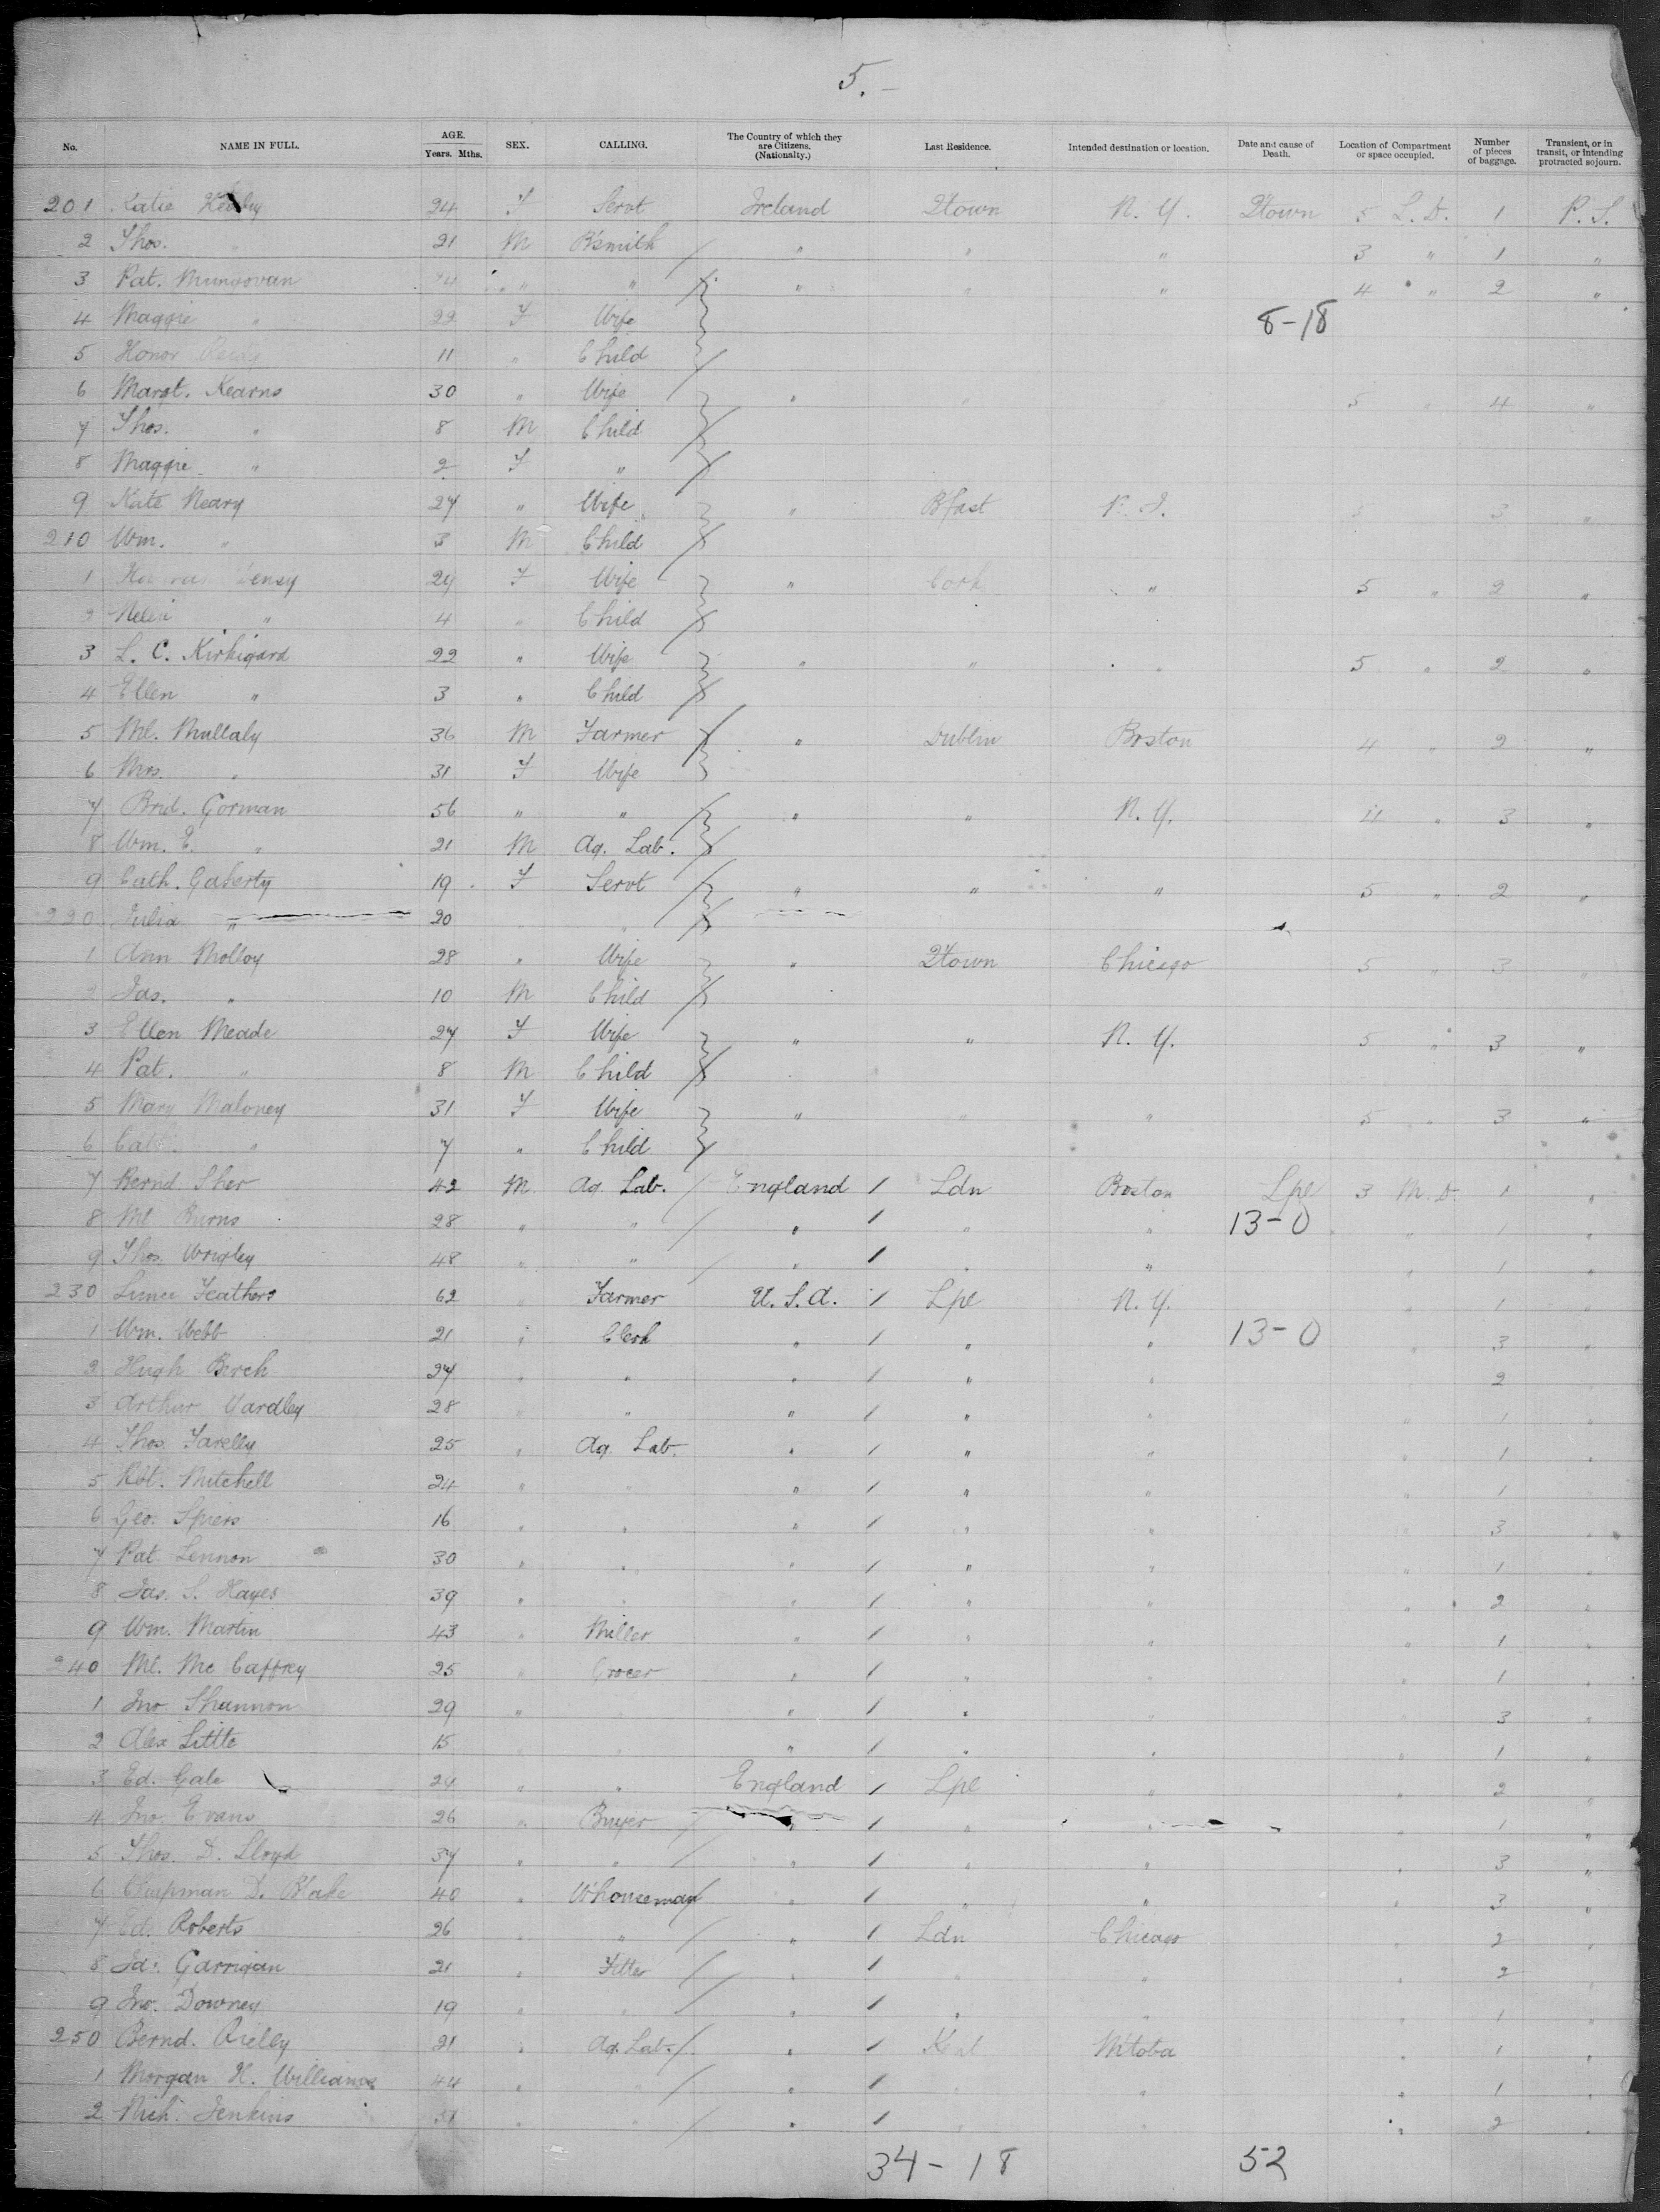 5.-
No. NAME IN FULL. AGE. Years. Mths. SEX. CALLING. The Country of which they are Citizens. (Nationalty.) Last Residence. Intended destination or location. Date and cause of Death. Location of Compartment or space occupied. Number of pieces of baggage. Transient, or in transit, or intending protracted sojourn.
201 Katie 24 F Servt Ireland Qtown N. Y. Qtown 5 L. D. 1 P. S.
2 Thos. 21 M B'smith " " " 3 " 1 "
3 Pat. " " " " " 4 " 2 "
4 Maggie " 22 F Wife 8-18
5 Honor 11 " Child
6 Margt. Kearns 30 " Wife " 5 4 "
7 Thos. " 8 M Child
8 Maggie " 2 F "
9 Kate Neary 27 " Wife " Bfast 3 "
210 Wm. " 3 M Child
1 29 F Wife " Cork " 5 " 2 "
2 " 4 " Child
3 L. C. Kirkigard 22 " Wife " " " 5 " 2 "
4 Ellen " 3 " Child
5 Ml. Mullaly 36 M Farmer " Dublin Boston 4 " 2 "
6 Mrs. " 31 F Wife
7 Brid. Gorman 56 " " " " N. Y. 11 " 3 "
8 Wm. E. " 21 M Ag. Lab.
9 Cath. Gaherty 19 F Servt " " " 5 " 2 "
220 Julia " 20 " "
1 Ann Molloy 28 " Wife " Qtown Chicago 5 " 3 "
2 Jas. " 10 M Child
3 Ellen Meade 27 F Wife " " N. Y. 5 " 3 "
4 Pat. " 8 M Child
5 Mary Maloney 31 F Wife " " " 5 " 3 "
6 " 7 " Child
7 Bernd Sher 42 M Ag. Lab. England 1 Ldn Boston Lpl 3 M. D. 1 "
8 Ml. Burns 28 " " " 1 " " 13-0 " 1 "
9 Thos. Wrigley 48 " " " 1 " " " 1 "
230 Feathers 62 " Farmer U. S. A. 1 Lpl N. Y. " 1 "
1 Wm. Webb 21 " Clerk " 1 " " 13-0 " 3 "
2 Hugh Birch 27 " " " 1 " " 2
3 Arthur Yardley 28 " " " 1 " " " 1 "
4 Thos. Farelly 25 " Ag. Lab. " 1 " " " 1 "
5 Robt. Mitchell 24 " " " 1 " " " 1 "
6 Geo. Spiers 16 " " " 1 " " " 3 "
7 Pat Lennon 30 " " " 1 " " " 1 "
8 Jas. S. Hayes 39 " " " 1 " " " 2 "
9 Wm. Martin 43 " Miller " 1 " " " 1 "
240 Ml. Mc Caffrey 25 " Grocer " 1 " " " 1 "
1 Jno. Shannon 29 " " 1 " " " 3 "
2 Alex Little 15 " " 1 " " " 1 "
3 Ed. Gale 24 " " England 1 Lpl " " 2 "
4 Jno. Evans 26 " Buyer " 1 " " 1 "
5 Thos. D. Lloyd 37 " " " 1 " " " 3 "
6 Chapman D. Blake 40 " W'houseman " 1 " " " 3 "
7 Ed. Roberts 26 " " " 1 Ldn Chicago " 2 "
8 Garrigan 21 " Fitter " 1 " " " 2 "
9 Jno. Downey 19 " " " 1 " " " 1 "
250 Bernd. Rielly 21 " Ag. Lab. " 1 M'toba " 1 "
1 Morgan H. Williams 44 " " " 1 " " " 1 "
2 Jenkins " " " 1 " " " 2 "
34-18 52